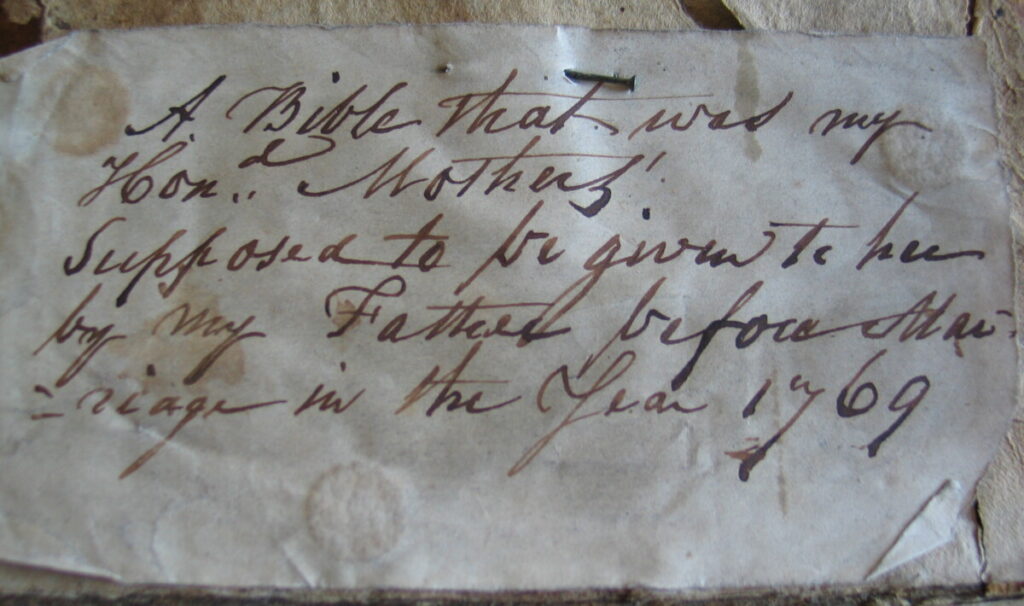 A Bible that was my
Hon.d Mothers'.
Supposed to be given to her
by my Father before Mar-
=riage in the Year 1769